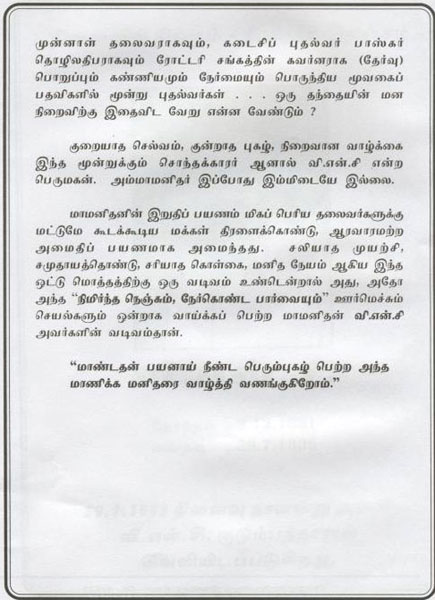 முன்னாள் தலைவராகவும், கடைசிப் புதல்வர் பாஸ்கர்
தொழிலதிபராகவும் ரோட்டரி சங்கத்தின் கவர்னராக (தேர்வு)
பொறுப்பும் கண்ணியமும் நேர்மையும் பொருந்திய மூவகைப்
பதவிகளில் மூன்று புதல்வர்கள் . . . ஒரு தந்தையின் மன
நிறைவிற்கு இதைவிட வேறு என்ன வேண்டும் ?
குறையாத செல்வம், குன்றாத புகழ், நிறைவான வாழ்க்கை
இந்த மூன்றுக்கும் சொந்தக்காரர் ஆனால் வி.என்.சி என்ற
பெருமகன். அம்மாமனிதர் இப்போது இம்மிடையே இல்லை.
மாமனிதனின் இறுதிப் பயணம் மிகப் பெரிய தலைவர்களுக்கு
மட்டுமே கூடக்கூடிய மக்கள் திரளைக்கொண்டு, ஆரவாரமற்ற
அமைதிப் பயணமாக அமைந்தது. சலியாத முயற்சி,
சமுதாயத்தொண்டு, சரியாத கொள்கை, மனித நேயம் ஆகிய இந்த
ஒட்டு மொத்தத்திற்கு ஒரு வடிவம் உண்டென்றால் அது, அதோ
அந்த "நிமிர்ந்த நெஞ்சும், நேர்கொண்ட பார்வையும்" ஊர்மெச்சும்
செயல்களும் ஒன்றாக வாய்க்கப் பெற்ற மாமனிதன் வி.என்.சி
அவர்களின் வடிவம்தான்.
"மாண்டதன் பயனாய் நீண்ட பெரும்புகழ் பெற்ற அந்த
மாணிக்க மனிதரை வாழ்த்தி வணங்குகிறோம்."